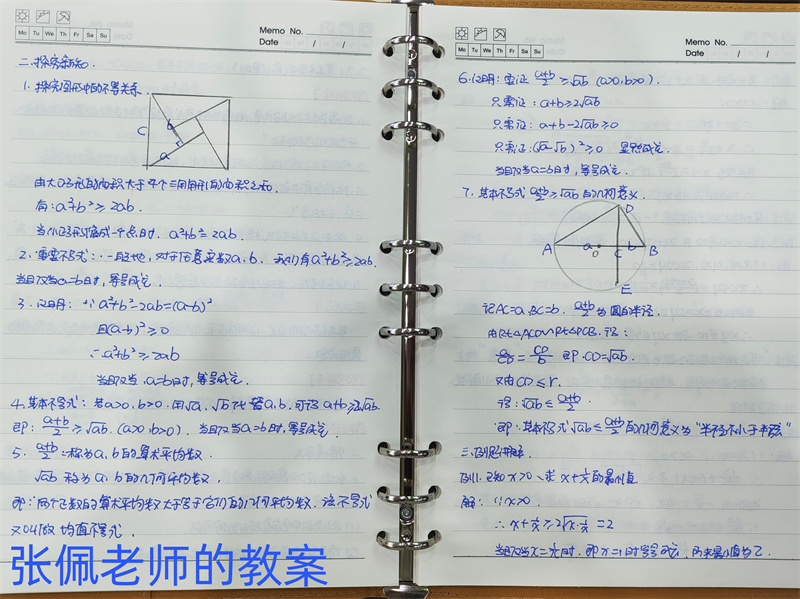 Memo No.
Mo Tu We Th Fr Sa Su
Date / /
二.探究新知.
1.探究图形中的不等关系.
C
b
a
由大正方形的面积大于4个三角形的面积之和.
有:a²+b²≥2ab.
当小正方形缩成一个点时, a²+b²=2ab.
2.重要不等式:一般地,对于任意实数a,b,我们有a²+b²≥2ab,
当且仅当a=b时,等号成立.
3.证明:∵a²+b²-2ab=(a-b)²
且(a-b)²≥0
∴a²+b²≥2ab
当且仅当a=b时,等号成立.
4.基本不等式:若a>0,b>0,用√a,√b代替a,b,可得a+b≥2√ab.
即:(a+b)/2≥√ab.(a>0,b>0).当且仅当a=b时,等号成立.
5.(a+b)/2:称为a,b的算术平均数.
√ab 称为a,b的几何平均数.
即:两个正数的算术平均数大于等于它们的几何平均数.该不等式
又叫做 均值不等式.
张佩老师的教案
Memo No.
Mo Tu We Th Fr Sa Su
Date / /
6.证明:要证 (a+b)/2≥√ab (a>0,b>0).
只需证:a+b≥2√ab
只需证:a+b-2√ab≥0
只需证:(√a-√b)²≥0 显然成立.
当且仅当a=b时,等号成立.
7.基本不等式 (a+b)/2≥√ab的几何意义.
D
A a O C b B
E
记AC=a,BC=b. (a+b)/2为圆的半径.
由Rt△ACD∽Rt△DCB.得:
a/CD=CD/b 即CD=√ab.
又由CD≤r.
得:√ab≤(a+b)/2.
即:基本不等式√ab≤(a+b)/2的几何意义为“半径不小于半弦”
三.例题讲解.
例1.已知x>0,求x+1/x的最小值
解:∵x>0.
∴x+1/x≥2√x·1/x=2
当且仅当x=1/x时,即x=1时等号成立,所求最小值为2.